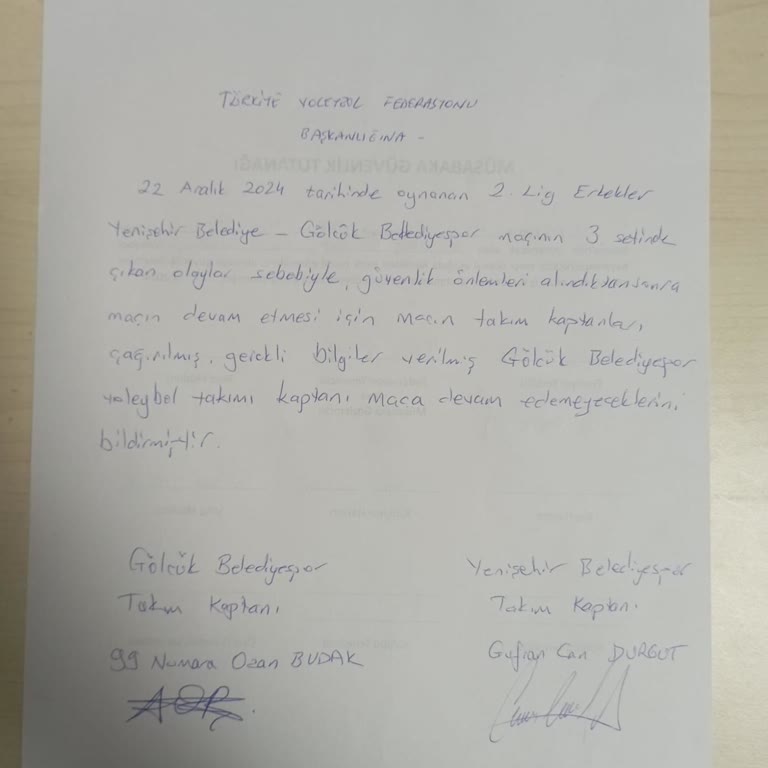 TÜRKİYE VOLEYBOL FEDERASYONU
BAŞKANLIĞINA -
MÜSABAKA GÜVENLİK TUTANAĞI
22 Aralık 2024 tarihinde oynanan 2. Lig Erkekler
Yenişehir Belediye - Gölcük Belediyespor maçının 3 setinde
çıkan olaylar sebebiyle, güvenlik önlemleri alındıktansonra
maçın devam etmesi için macın takım kaptanları
çağırılmış, gerekli bilgiler verilmiş Gölcük Belediyespor
voleybol takımı kaptanı maca devam edemeyeceklerini
bildirmiştir.
Gölcük Belediyespor
Takım Kaptanı
99 Numara Ozan BUDAK
Yenişehir Belediyespor
Takım Kaptanı
Can DURGUT